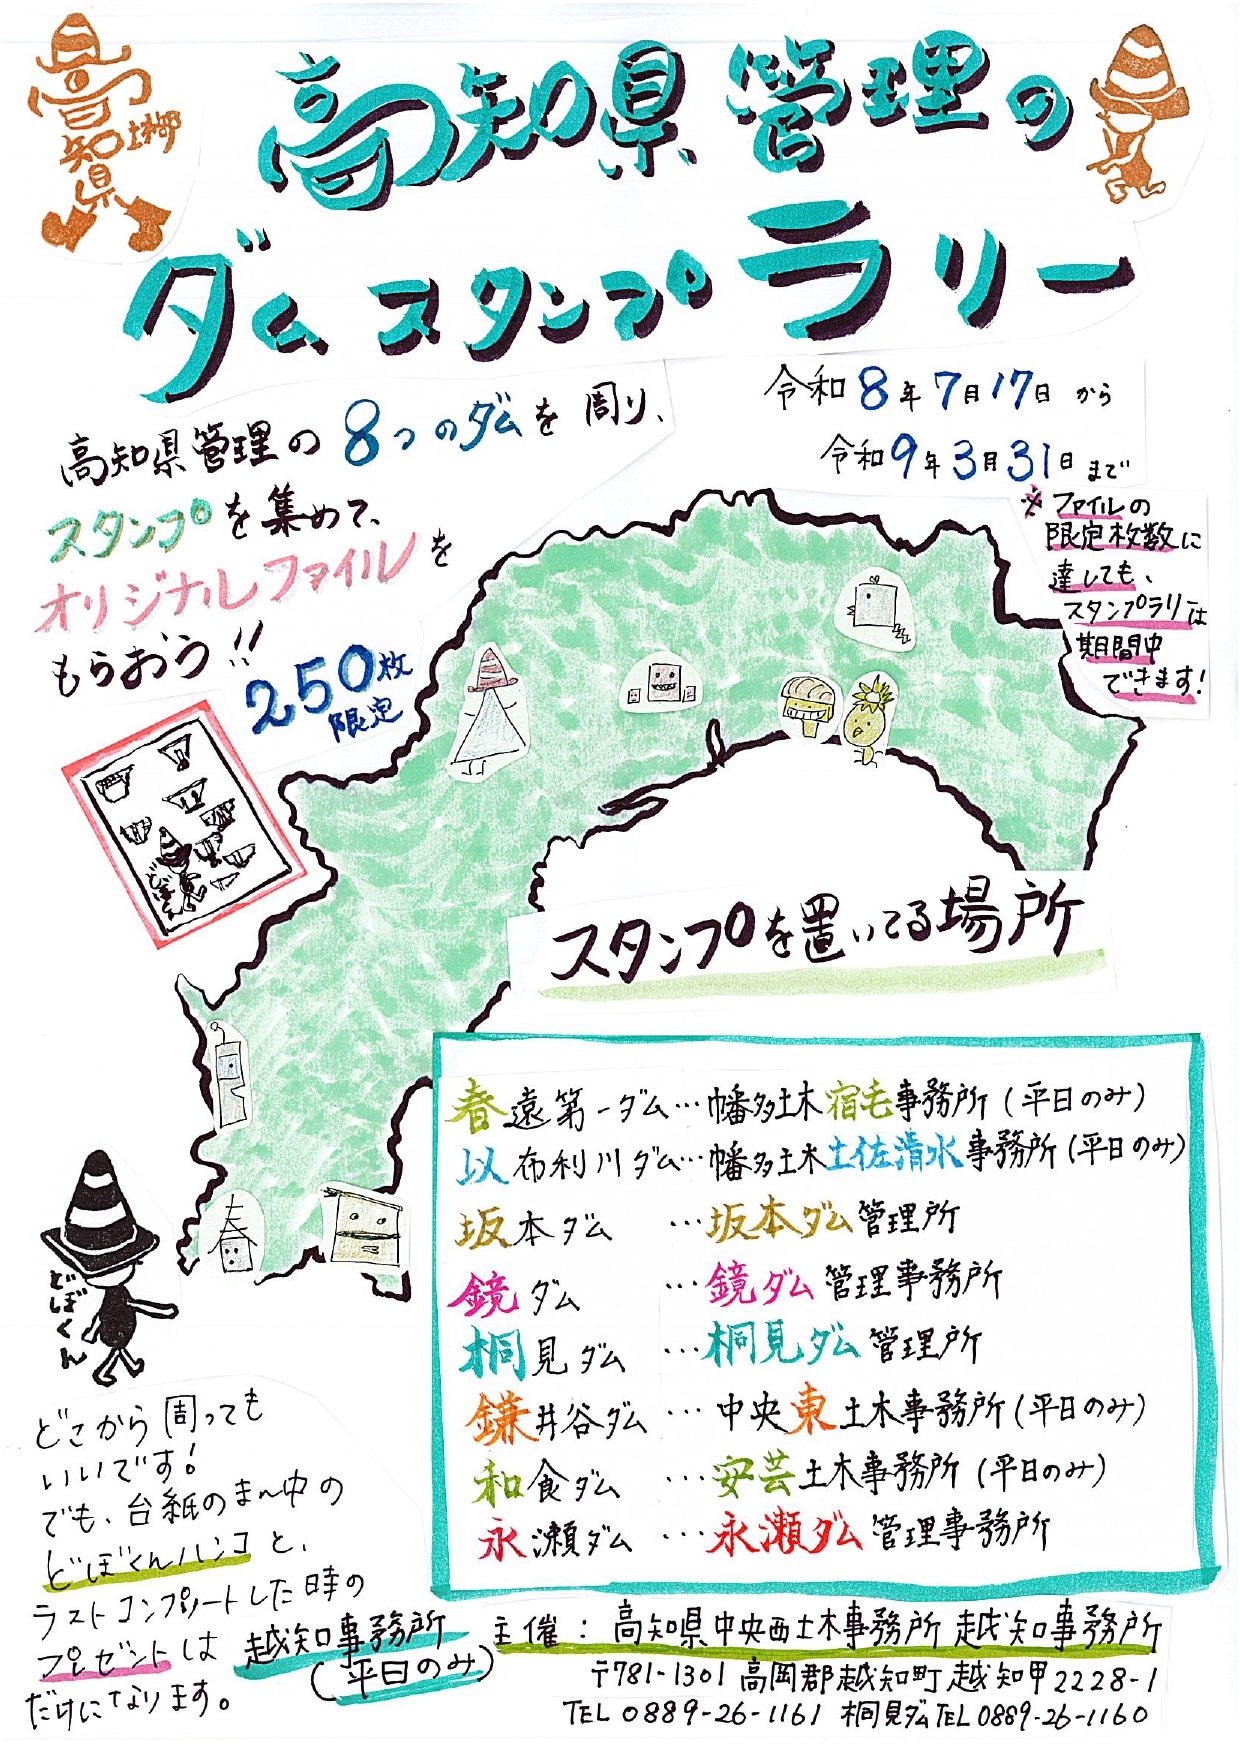 高知県
土木部
高知県管理の
ダムスタンプラリー
高知県管理の8つのダムを周り、
スタンプを集めて、
オリジナルファイルを
もらおう!!
250枚
限定
令和8年7月17日から
令和9年3月31日まで
※ファイルの
限定枚数に
達しても、
スタンプラリーは
期間中
できます!
どぼくん
スタンプを置いてる場所
春遠第一ダム…幡多土木宿毛事務所(平日のみ)
以布利川ダム…幡多土木土佐清水事務所(平日のみ)
坂本ダム …坂本ダム管理所
鏡ダム …鏡ダム管理事務所
桐見ダム …桐見ダム管理所
鎌井谷ダム …中央東土木事務所(平日のみ)
和食ダム …安芸土木事務所(平日のみ)
永瀬ダム …永瀬ダム管理事務所
春
どぼくん
どこから周っても
いいです!
でも、台紙のまん中の
どぼくんハンコと、
ラストコンプリートした時の
プレゼントは越知事務所
(平日のみ)
だけになります。
主催:高知県中央西土木事務所越知事務所
〒781-1301高岡郡越知町越知甲2228-1
TEL0889-26-1161 桐見ダムTEL0889-26-1160